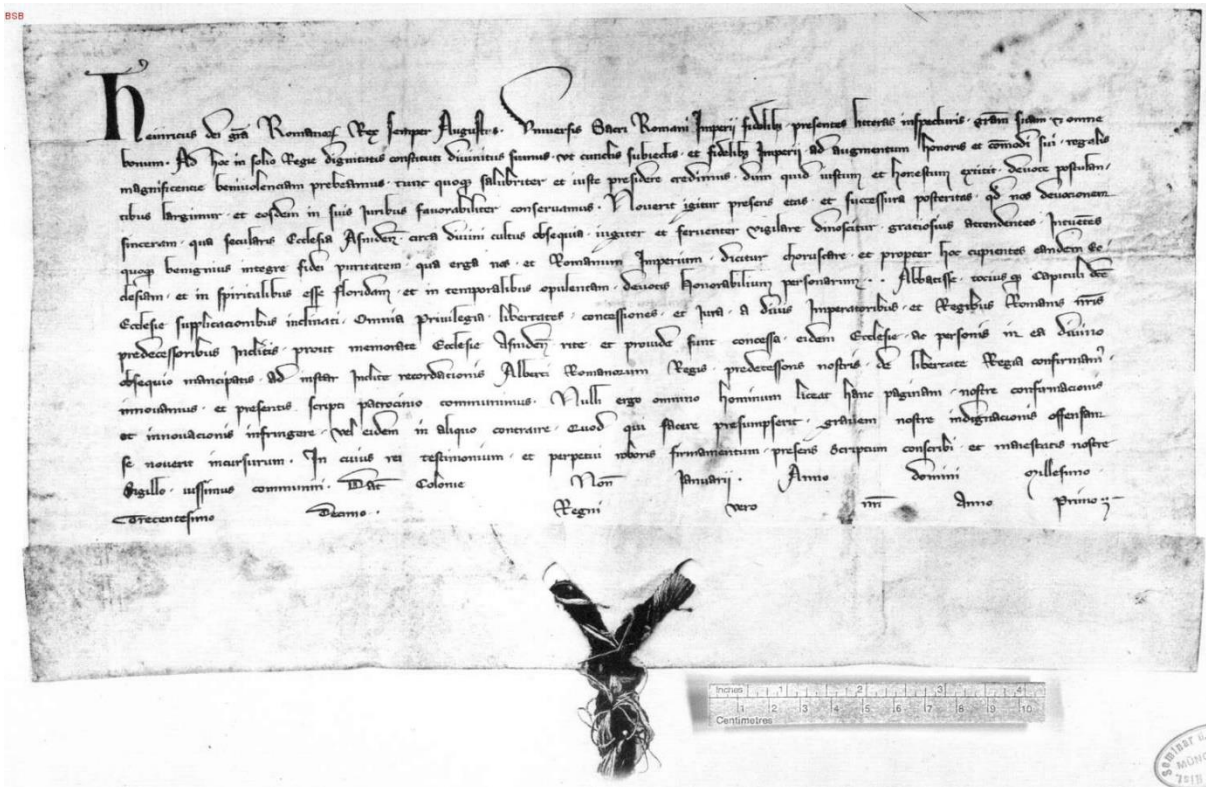 BSB
Heinricus dei gra Romanoꝝ Rex semper Augustus. Vniuersis Sacri Romani Imperii fidelibꝫ presentes litteras inspecturis. gram suam et omne
bonum. Ad hoc in solio Regie dignitatis constituti diuinitus sumus. vt cunctis subiectis. et fidelibꝫ Imperii ad augmentum honoris et comodi sui. regalis
magnificentie beniuolenciam prebeamus. tunc quoqꝫ salubriter et iuste presidere credimus. dum quid iustum et honestum existit. deuote postulan-
tibus largimur. et eosdem in suis Juribus fauorabiliter conseruamus. Nouerit igitur presens etas. et successura posteritas. qd nos deuocionem
sinceram. qua secularis Ecclesia Asniden. circa diuini cultus obsequia. iugiter et feruenter vigilare dinoscitur. graciosius attendentes Intuetes
quoqꝫ benignius integre fidei puritatem. qua erga nos. et Romanum Imperium. dicitur choruscare. et propter hoc cupientes eandem Ec-
clesiam. et in spiritalibus esse floridam. et in temporalibus opulentam. deuotis Honorabilium personarum. . Abbatisse. tociusqꝫ Capituli dce
Ecclesie supplicacionibus inclinati. Omnia Priuilegia. libertates. concessiones. et Jura. a diuis Imperatoribus. et Regibus Romanis nris
predecessoribus Inclitis. prout memorate Ecclesie Asniden rite et prouide sunt concessa. eidem Ecclesie. ac personis in ea diuino
obsequio mancipatis. ad instar Inclite recordacionis Alberti Romanorum Regis. predecessoris nostri. de libertate Regia confirmam.
innouamus. et presentis scripti patrocinio communimus. Nulli ergo omnino hominum liceat hanc paginam. nostre confirmacionis
et innouacionis infringere. vel eidem in aliquo contraire. Quod qui facere presumpserit. grauem nostre indignacionis offensam
se nouerit incursurum. In cuius rei testimonium. et perpetui roboris firmamentum. presens Scriptum conscribi. et maiestatis nostre
Sigillo. iussimus communiri. Dat Colonie Non Januarij. Anno domini Millesimo.
Trecentesimo Decimo. Regni vero nri Anno Primo
Inches 1 2 3 4
1 2 3 4 5 6 7 8 9 10
Centimetres
Seminar